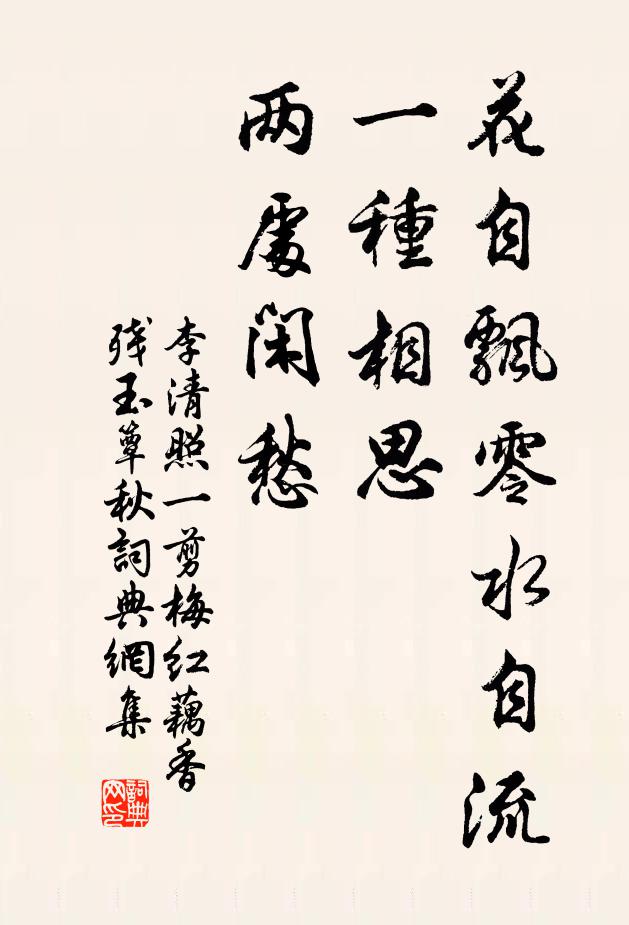 花自飄零水自流
一種相思
两處閑愁
李清照一剪梅红藕香
残玉簟秋詞典網集
詞典網印